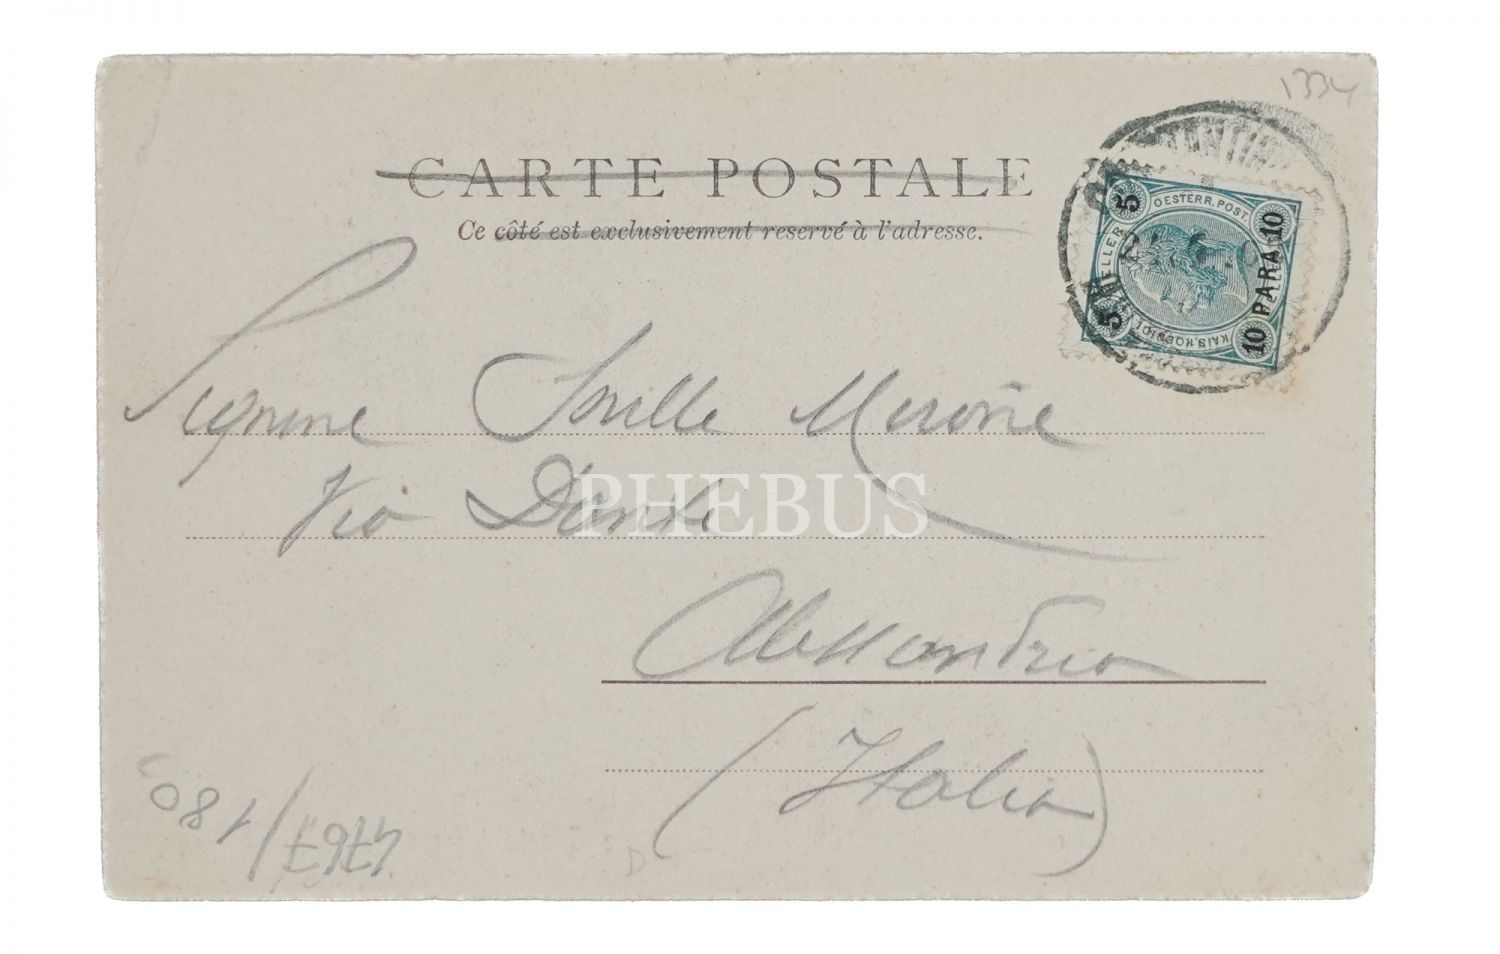 1334
CARTE POSTALE
Ce côté est exclusivement reservé à l'adresse.
5 OESTERR. POST 10
HELLER
5 KAIS. KOENIGL
10 PARA 10
Via Dante
PHEBUS
Alessandria
(Italia)
4767/180